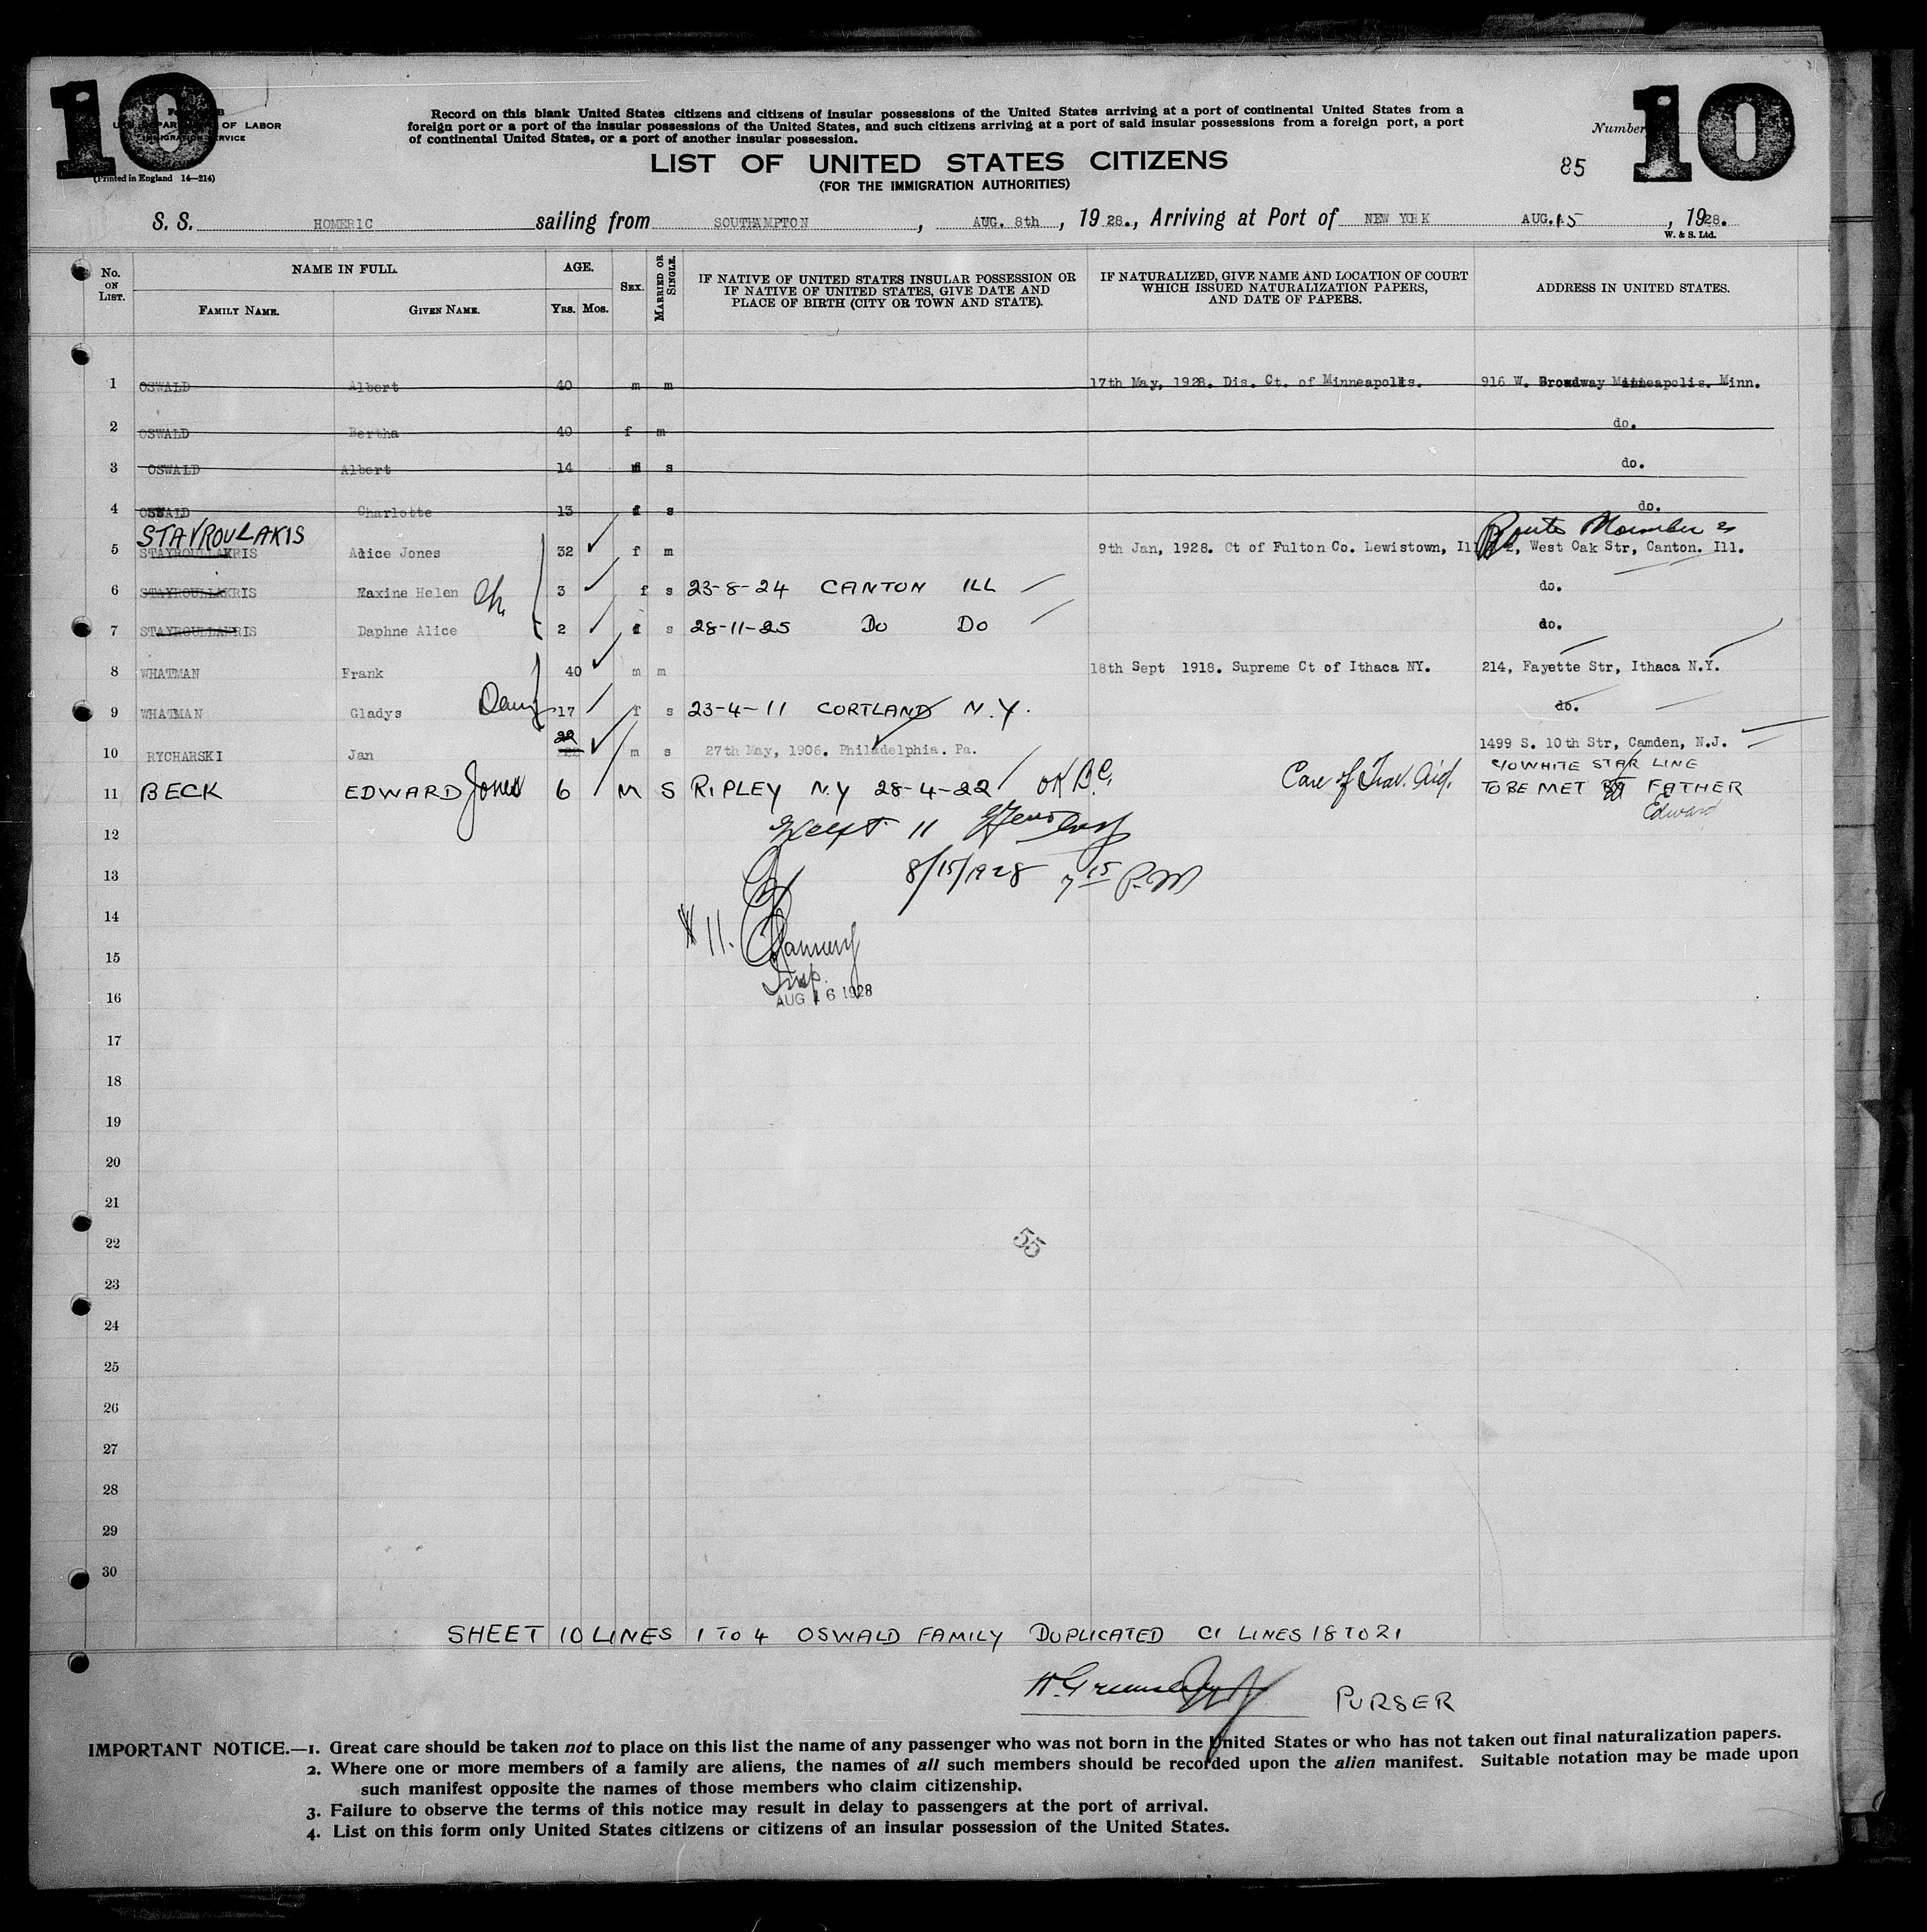 10
10
U.S. DEPARTMENT OF LABOR
IMMIGRATION SERVICE
(Printed in England 14—214)
Record on this blank United States citizens and citizens of insular possessions of the United States arriving at a port of continental United States from a
foreign port or a port of the insular possessions of the United States, and such citizens arriving at a port of said insular possessions from a foreign port, a port
of continental United States, or a port of another insular possession.
Number
LIST OF UNITED STATES CITIZENS
(FOR THE IMMIGRATION AUTHORITIES)
85
S. S. HOMERIC sailing from SOUTHAMPTON, AUG. 8th, 1928., Arriving at Port of NEW YORK AUG. 15, 1928.
W. & S. Ltd.
No. ON LIST. NAME IN FULL. FAMILY NAME. GIVEN NAME. AGE. YRS. MOS. SEX. MARRIED OR SINGLE. IF NATIVE OF UNITED STATES INSULAR POSSESSION OR IF NATIVE OF UNITED STATES, GIVE DATE AND PLACE OF BIRTH (CITY OR TOWN AND STATE). IF NATURALIZED, GIVE NAME AND LOCATION OF COURT WHICH ISSUED NATURALIZATION PAPERS, AND DATE OF PAPERS. ADDRESS IN UNITED STATES.
1 OSWALD Albert 40 m m 17th May, 1928. Dis. Ct. of Minneapolis. 916 W. Broadway Minneapolis. Minn.
2 OSWALD Bertha 40 f m do.
3 OSWALD Albert 14 m s do.
4 OSWALD Charlotte 13 f s do.
STAVROULAKIS Route
5 STAYROULLAKRIS Alice Jones 32 f m 9th Jan, 1928. Ct of Fulton Co. Lewistown, Ill West Oak Str, Canton. Ill.
6 STAYROULLAKRIS Maxine Helen 3 f s 23-8-24 CANTON ILL do.
7 STAYROULLAKRIS Daphne Alice 2 f s 28-11-25 DO DO do.
8 WHATMAN Frank 40 m m 18th Sept 1918. Supreme Ct of Ithaca NY. 214, Fayette Str, Ithaca N.Y.
9 WHATMAN Gladys 17 f s 23-4-11 CORTLAND N.Y. do.
10 RYCHARSKI Jan 22 m s 27th May, 1906. Philadelphia. Pa. 1499 S. 10th Str, Camden, N.J.
C/O WHITE STAR LINE
11 BECK EDWARD Jones 6 M S RIPLEY N.Y 28-4-22 OK Care of Trav. Aid. TO BE MET BY FATHER
Edward
12 Except 11
13 8/15/1928 7 15 P.M
14 # 11.
15
Insp.
16 AUG 16 1928
17
18
19
20
21
22 55
23
24
25
26
27
28
29
30
SHEET 10 LINES 1 TO 4 OSWALD FAMILY DUPLICATED C1 LINES 18 TO 21
PURSER
IMPORTANT NOTICE.—1. Great care should be taken not to place on this list the name of any passenger who was not born in the United States or who has not taken out final naturalization papers.
2. Where one or more members of a family are aliens, the names of all such members should be recorded upon the alien manifest. Suitable notation may be made upon
such manifest opposite the names of those members who claim citizenship.
3. Failure to observe the terms of this notice may result in delay to passengers at the port of arrival.
4. List on this form only United States citizens or citizens of an insular possession of the United States.